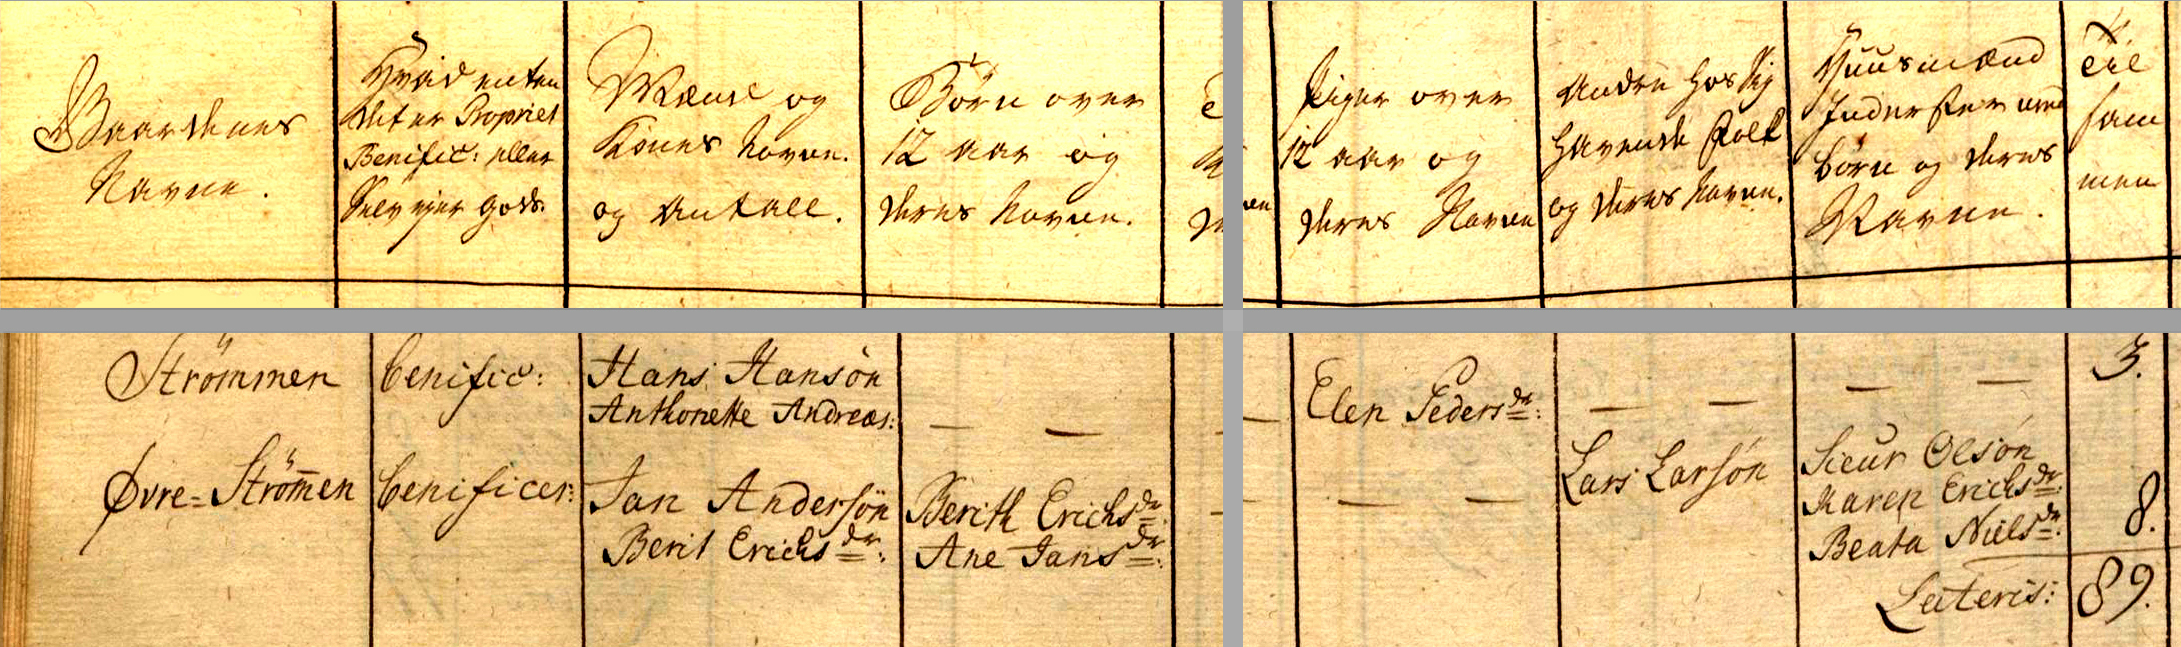 Gaardenes
Navne.
Hvad enten
det er Propriet
Benific: eller
Selv ejer Gods.
Mænd og
Koners Navne.
og Antall.
Börn over
12 aar og
deres Navne.
Piger over
12 aar og
deres Navne
Andre hos sig
havende Folk
og deres Navne.
Huusmænd
Inderster med
börn og deres
Navne.
Til
sam
men
Strömmen
benific:
Hans Hansön
Anthonette Andreas:
— —
Elen Pedersdr:
— —
— —
3.
Øvre= Strömen
benificer:
Jan Andersön
Berit Erichsdr:
Berith Erichsdr:
Ane Jansdr:
— —
Lars Larsön
Sicur Olsön
Maren Erichsdr:
Beata Nielsdr:
8.
Lateris:
89.